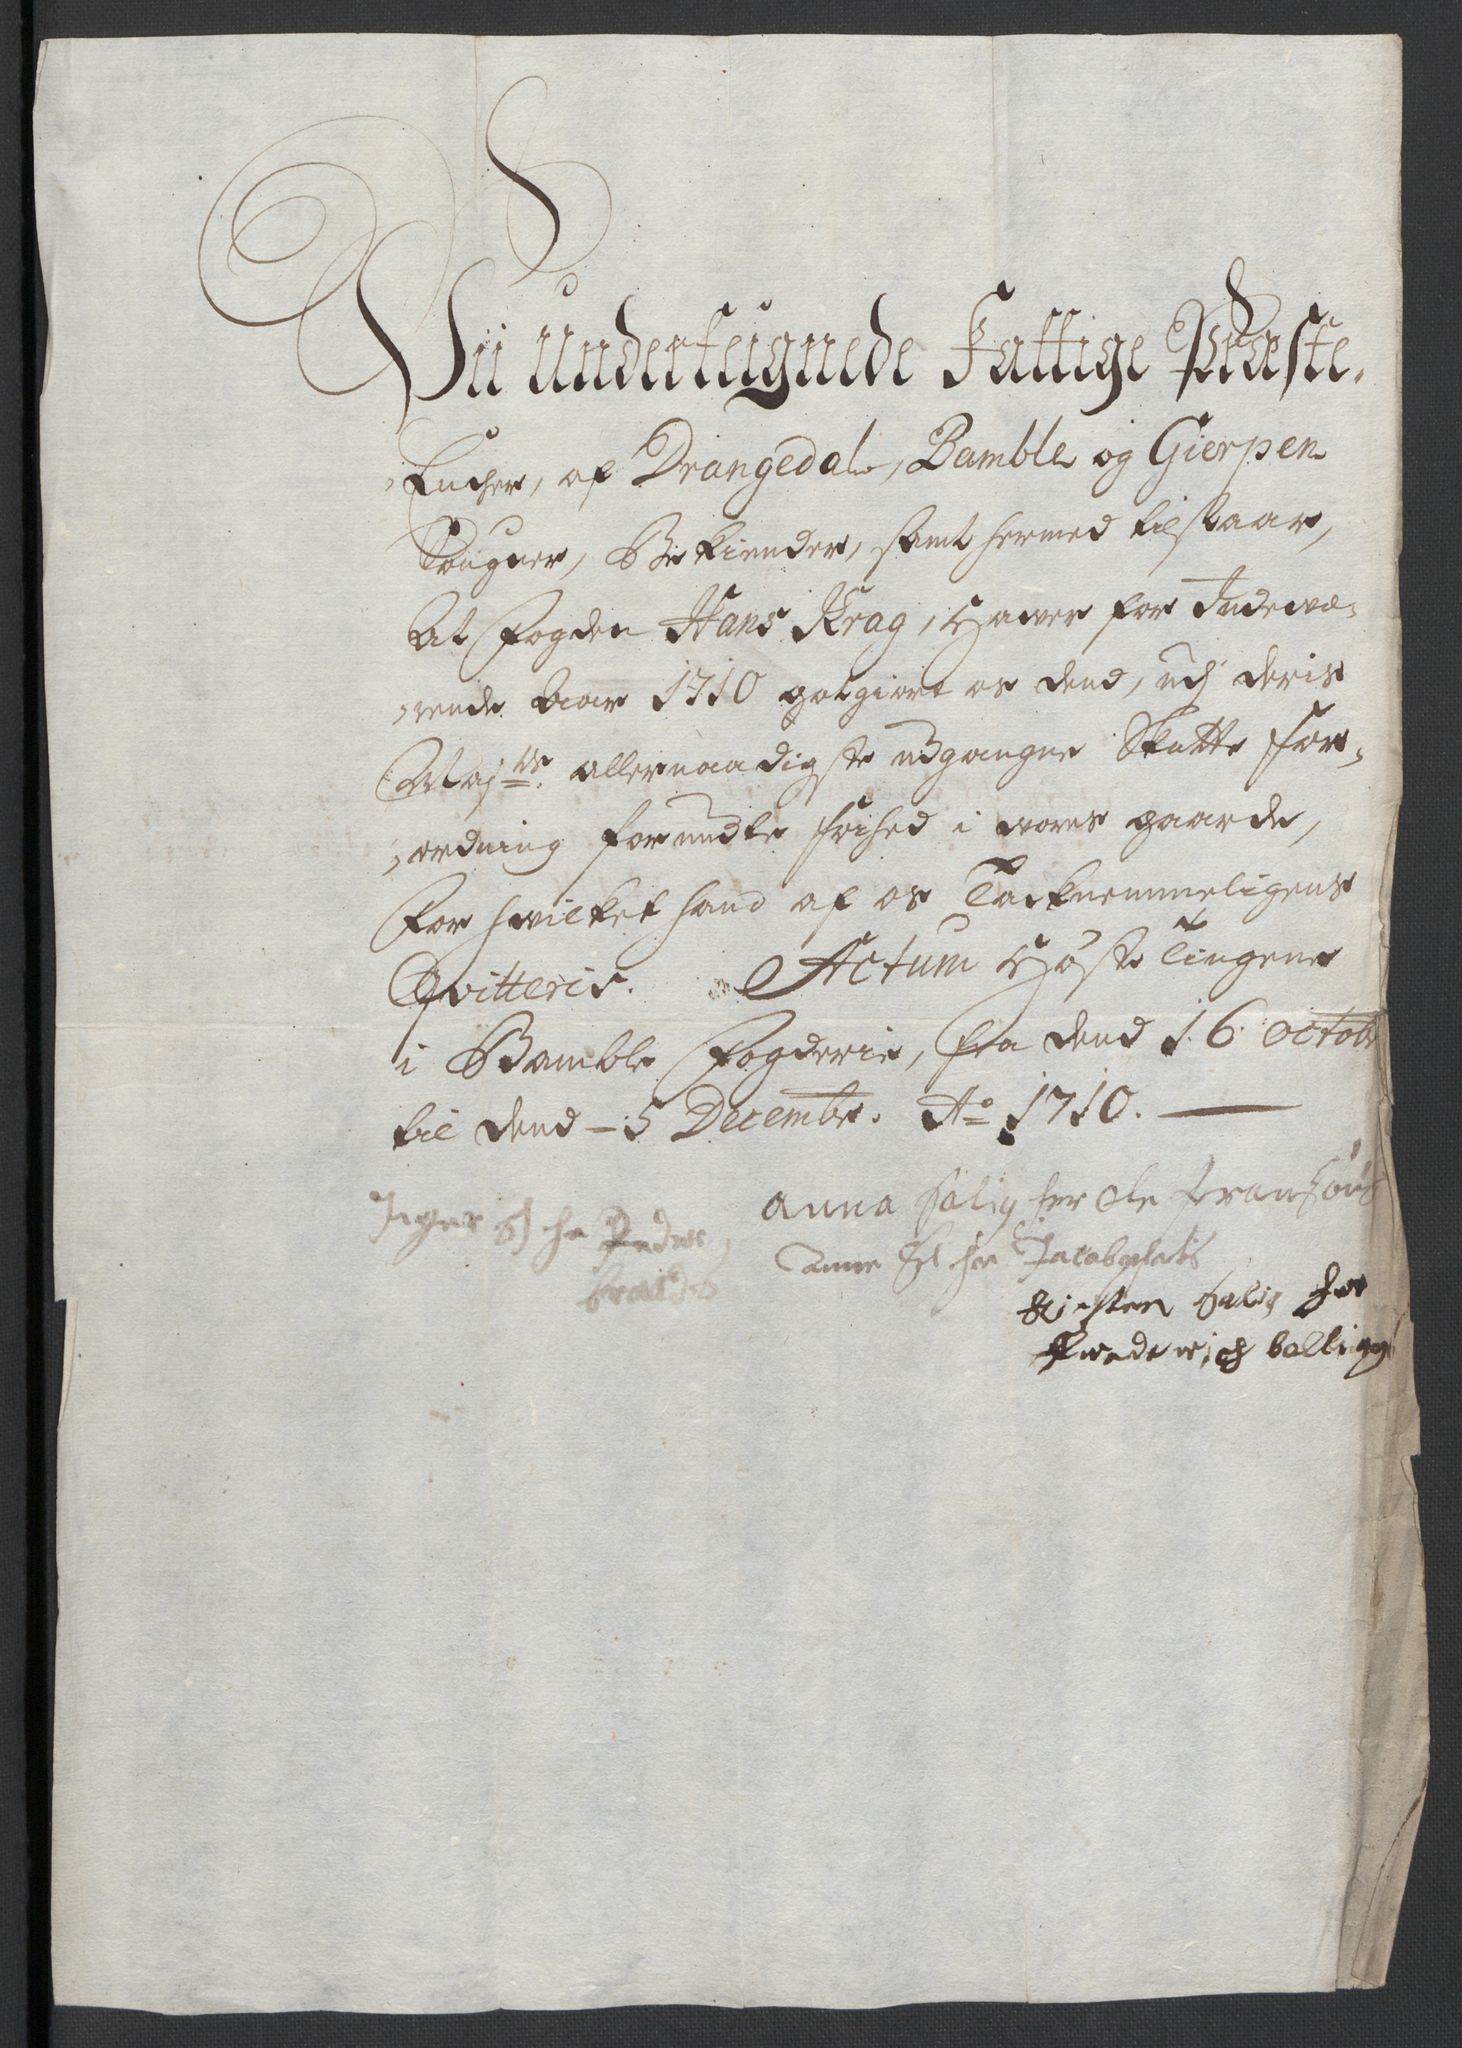 Vii Underteignede Fattige Præste,
Encher, af Drangedal, Bamble og Gierpen
Sougner, Bekiender, samt hermed tilstaar,
At Fogden Hans Krag, Hawer for Indewæ-
rende Aar 1710 gotgiort os dend, udj deris
Maj:ts allernaadigste udgangne Skatte For-
ordning forundte Frihed i wores gaarde,
For hwilket hand af os Tacknemmeligens
Qvitteris. Actum Høste Tingene
i Bamble Fogderie, fra dend 16 Octobr
til dend 5 Decembr. Ao 1710.
Inger Sl he Peders
anna salig her Ole Fransøns
Anne Sl her Jacobs
Kiesten salig her
Frederich